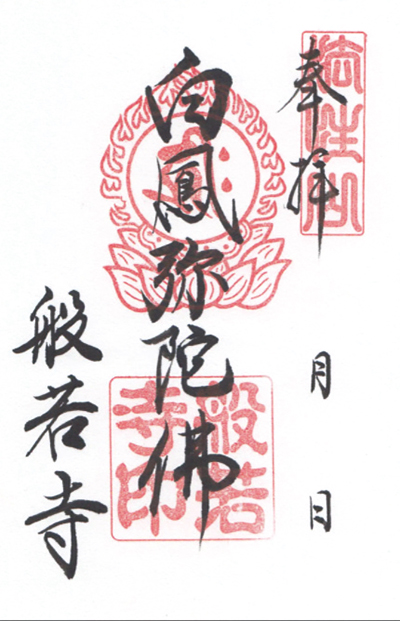 奉拝
月
日
白鳳弥陀佛
般若寺
般若
寺印